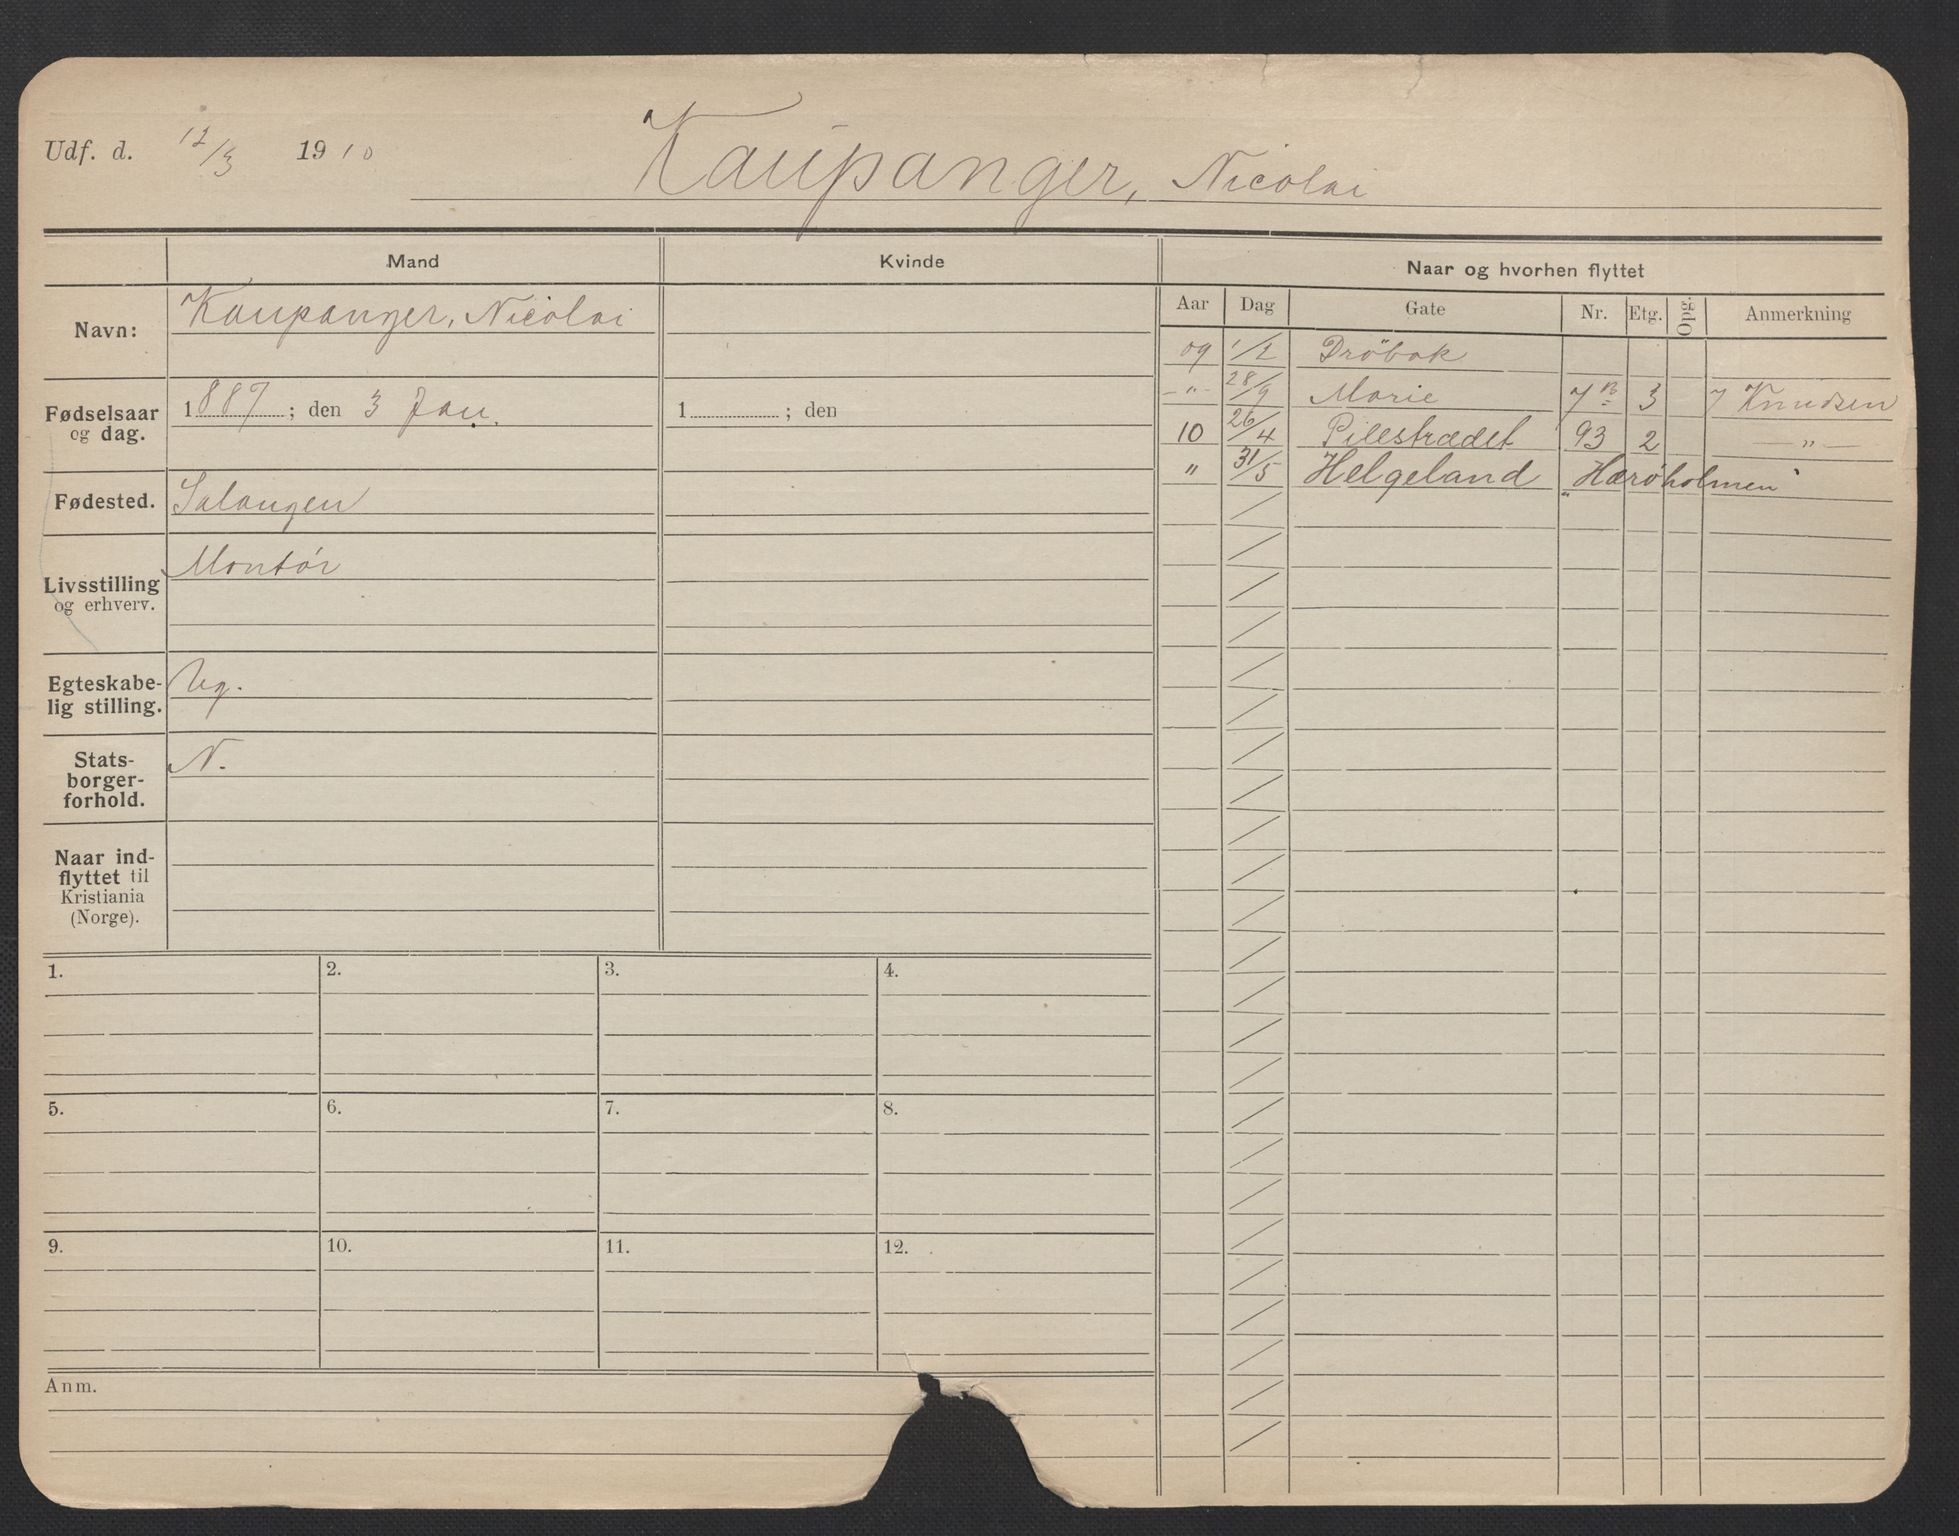 Udf. d. 12/3 1910
Kaupanger, Nicolai
Mand
Kvinde
Naar og hvorhen flyttet
Aar Dag Gate Nr. Etg. Opg. Anmerkning
Navn: Kaupanger, Nicolai
Fødselsaar og dag. 1887; den 3 Jan. 1 ; den
Fødested. Salangen
Livsstilling og erhverv. Montør
Egteskabe-
lig stilling. Ug.
Stats-
borger-
forhold. N.
Naar ind-
flyttet til
Kristiania
(Norge).
09 1/2 Dröbak
" 28/9 Marie 7B 3 Knudsen
10 26/4 Pilestrædet 93 2 "
" 31/5 Helgeland "Hærøholmen"
1. 2. 3. 4.
5. 6. 7. 8.
9. 10. 11. 12.
Anm.